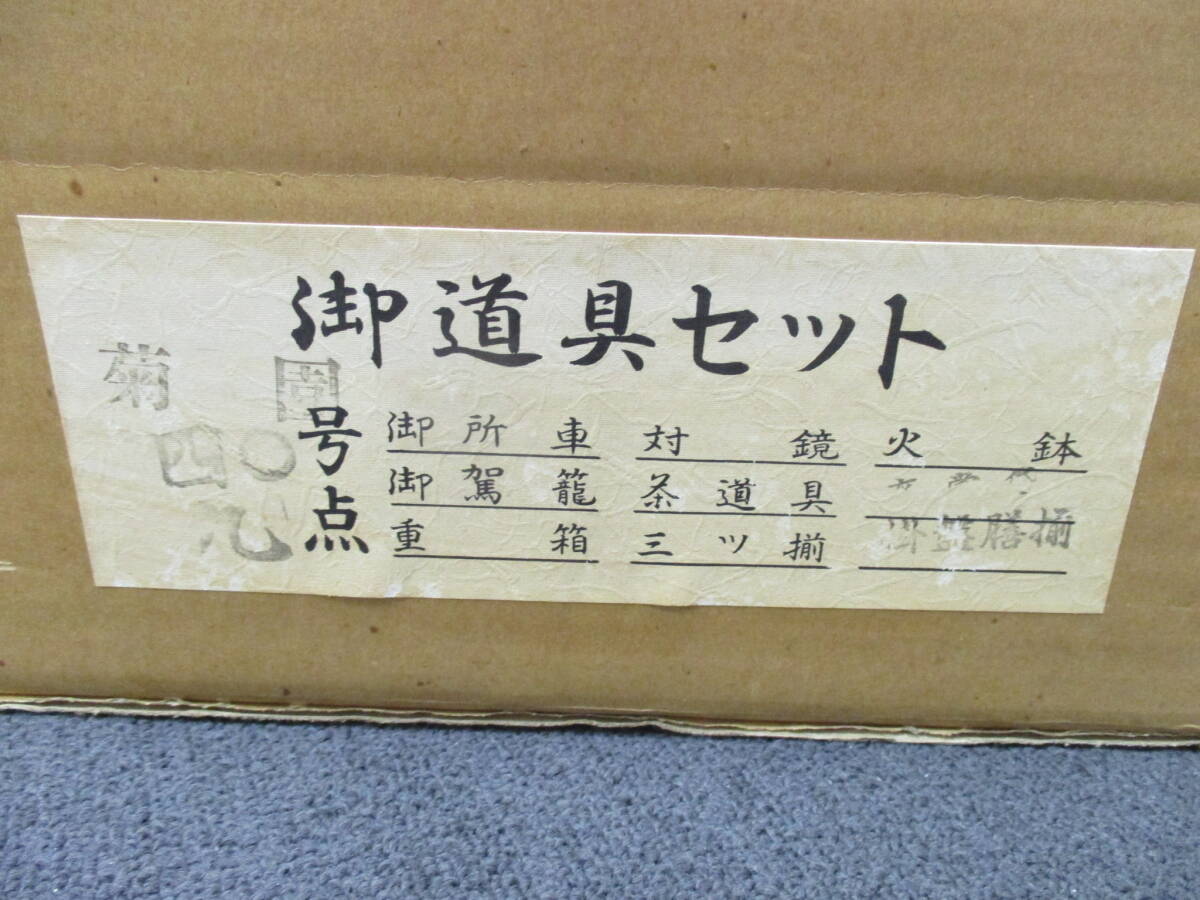 御道具セット
菊
四〇号
九点
御所車
御駕籠
重箱
対鏡
茶道具
三ツ揃
火鉢
掛盤膳揃